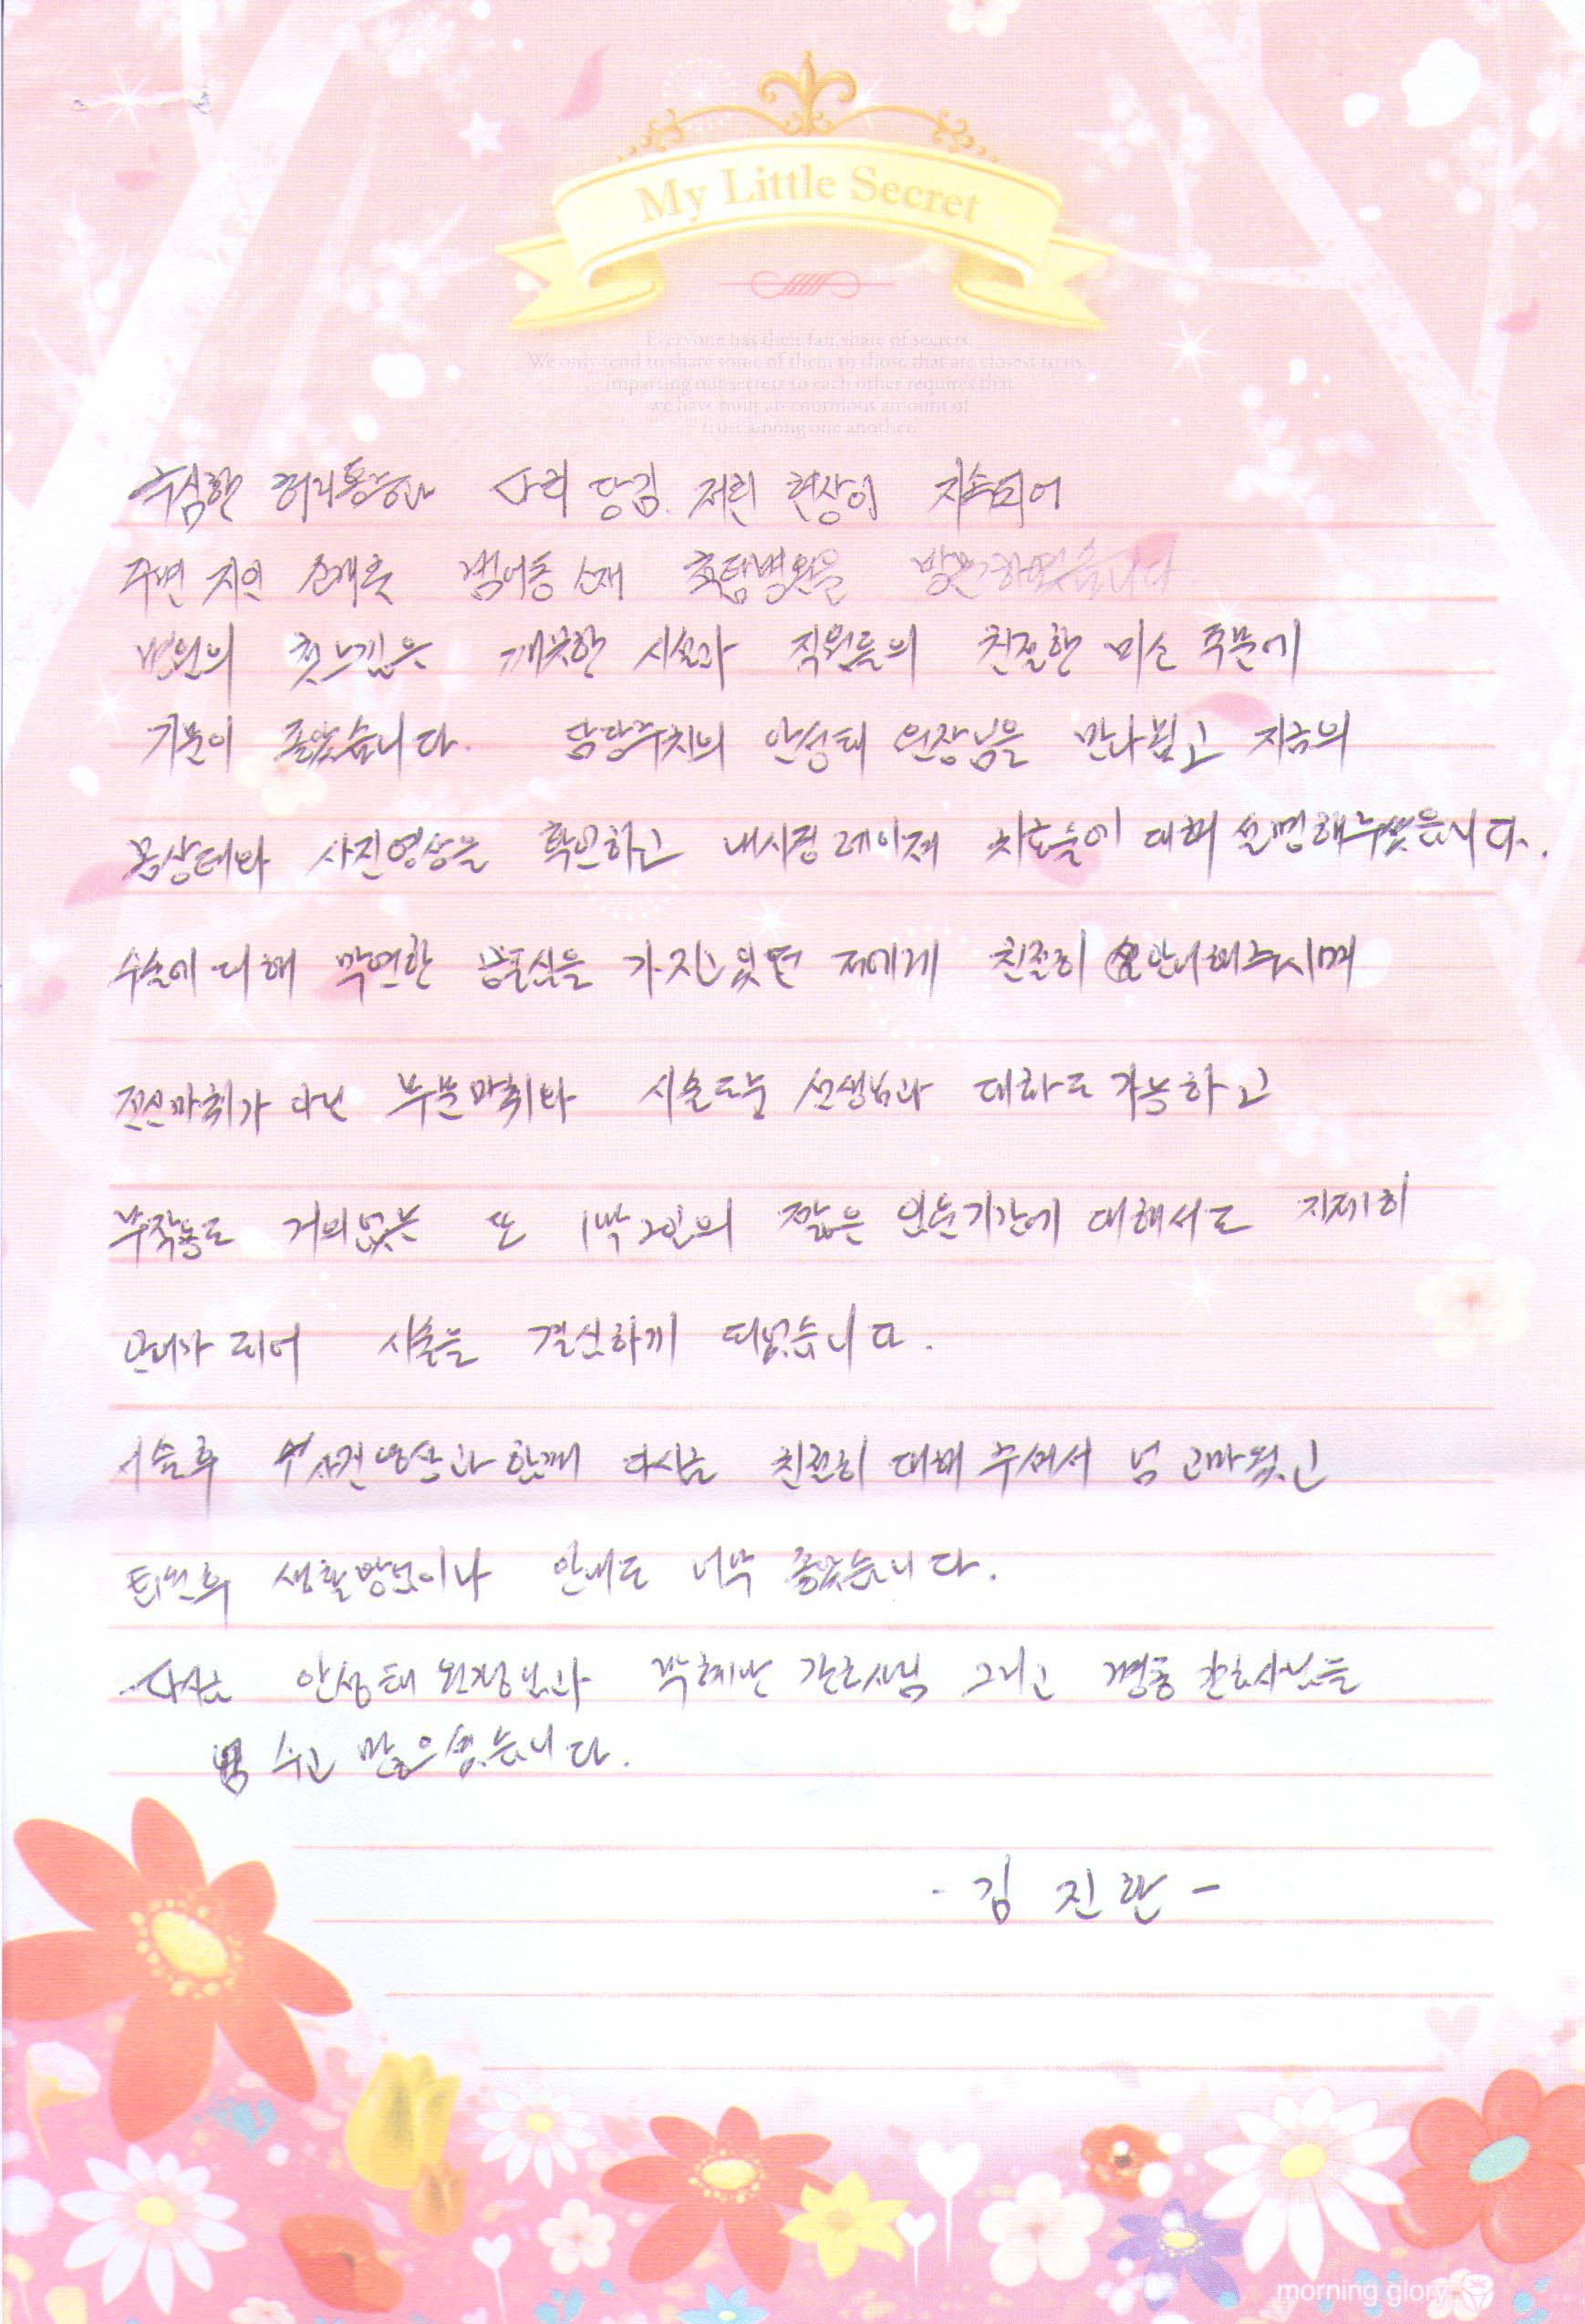 My Little Secret
Everyone has their fair share of secrets.
We only tend to share some of them to those that are closest to us.
Imparting our secrets to each other requires that
we have built an enormous amount of
trust among one another.
심한 허리통증과 다리 당김. 저린 현상이 지속되어
주변 지인 소개로 범어동 소재 병원을 방문하였습니다
병원의 첫느낌은 깨끗한 시설과 직원들의 친절한 미소 때문에
기분이 좋았습니다. 담당주치의 안성태 원장님을 만나뵙고 지금의
몸상태와 사진영상을 확인하고 내시경 레이저 치료술에 대해 설명해주셨습니다.
수술에 대해 막연한 공포심을 가지고 있던 저에게 친절히 안내해주시며
전신마취가 아닌 부분마취와 시술도중 선생님과 대화도 가능하고
부작용도 거의없는 또 1박2일의 짧은 입원기간에 대해서도
안내가 되어 시술을 결심하게 되었습니다.
시술후 사진영상과 함께 다시금 친절히 대해 주셔서 넘 고마웠고
퇴원후 생활방법이나 안내도 너무 좋았습니다.
다시금 안성태 원장님과 간호사님 그리고 병동 간호사님들
수고 많으셨습니다.
- 김 진환 -
morning glory